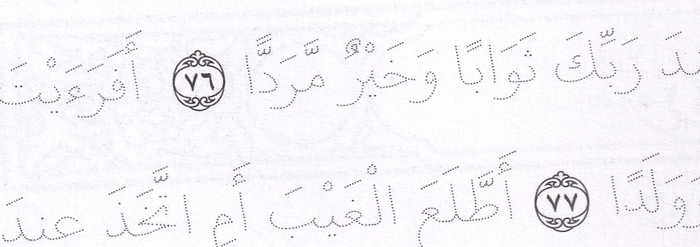 ـندَ رَبِّكَ ثَوَابًا وَخَيْرٌ مَّرَدًّا ٧٦ أَفَرَءَيْتَ
وَوَلَدًا ٧٧ أَطَّلَعَ الْغَيْبَ أَمِ اتَّخَذَ عِندَ